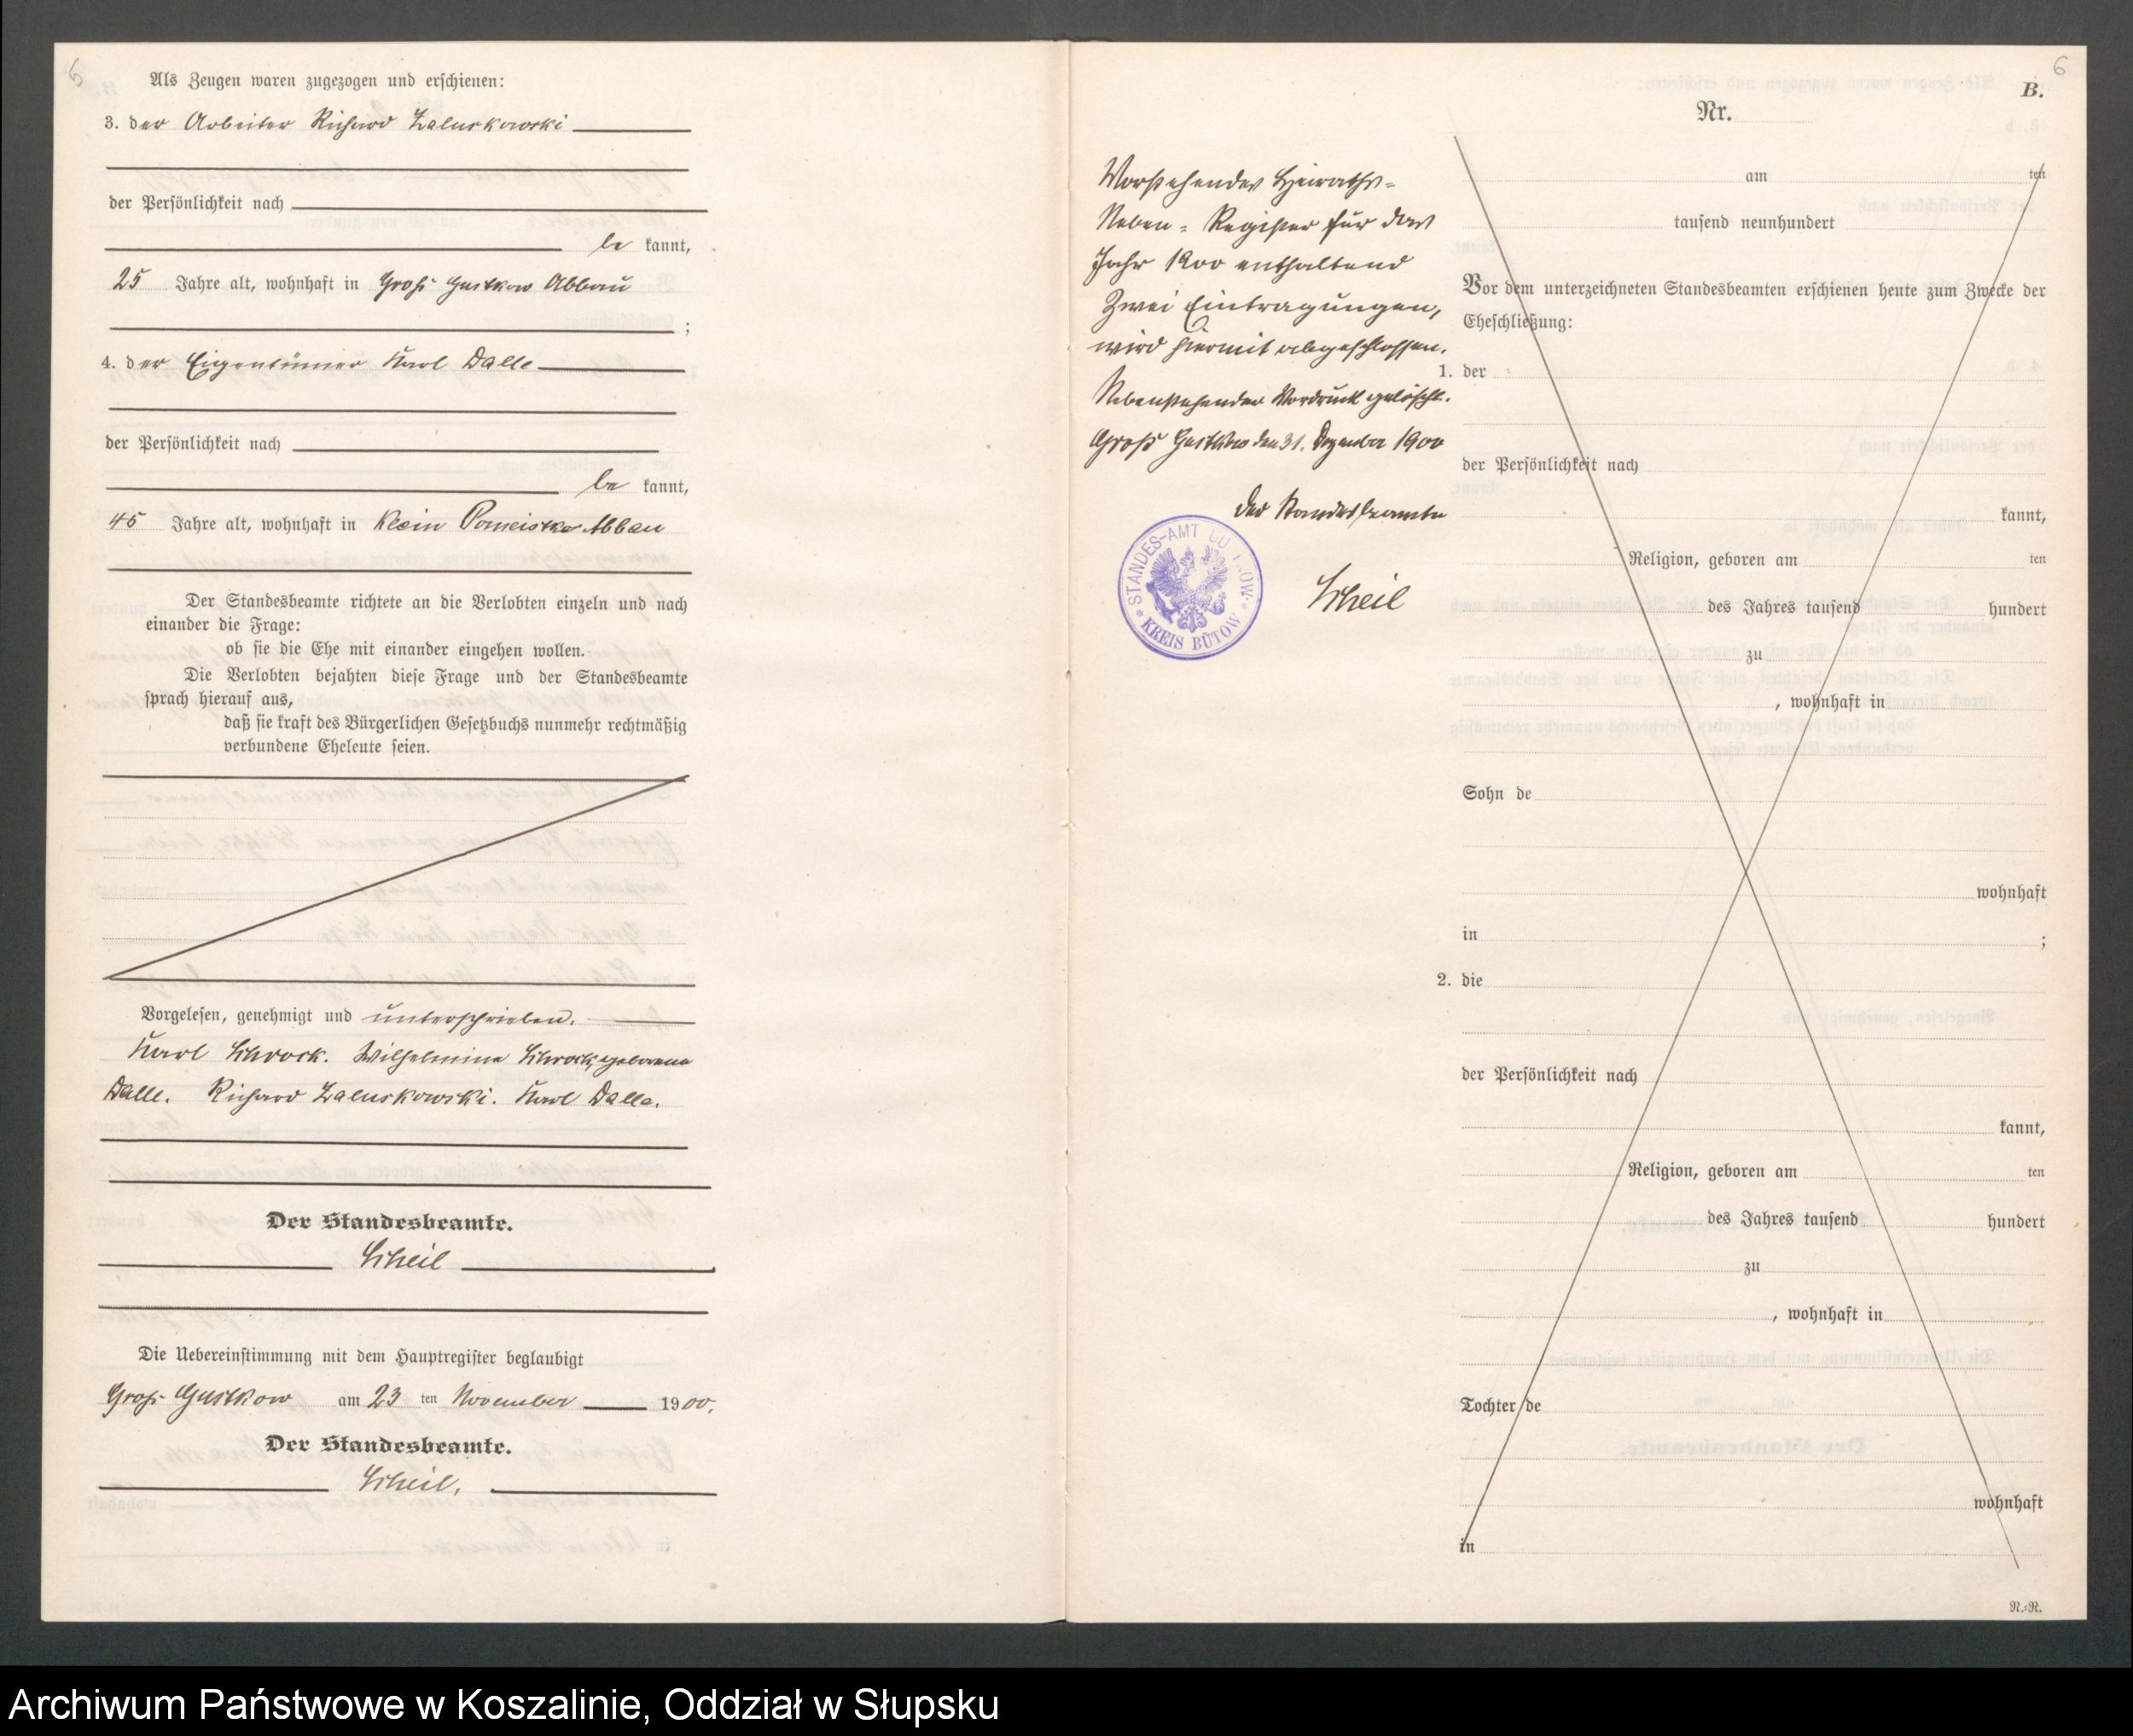 5
Als Zeugen waren zugezogen und erschienen:
3. der Arbeiter Richard Zaluskowski
der Persönlichkeit nach
be kannt,
25 Jahre alt, wohnhaft in Groß Gustkow Abbau
;
4. der Eigentümer Karl Dalle
der Persönlichkeit nach
be kannt,
45 Jahre alt, wohnhaft in Klein Pomeiske Abbau
Der Standesbeamte richtete an die Verlobten einzeln und nach
einander die Frage:
ob sie die Ehe mit einander eingehen wollen.
Die Verlobten bejahten diese Frage und der Standesbeamte
sprach hierauf aus,
daß sie kraft des Bürgerlichen Gesetzbuchs nunmehr rechtmäßig
verbundene Eheleute seien.
Vorgelesen, genehmigt und unterschrieben.
Karl Schrock. Wilhelmine Schrock, geborene
Dalle. Richard Zaluskowski. Karl Dalle.
Der Standesbeamte.
Scheil
Die Uebereinstimmung mit dem Hauptregister beglaubigt
Groß Gustkow am 23 ten November 1900.
Der Standesbeamte.
Scheil.
6
B.
Vorstehendes Heiraths-
Neben-Register für das
Jahr 1900 enthaltend
Zwei Eintragungen,
wird hiermit abgeschlossen.
Nebenstehender Vordruck gelöscht.
Groß Gustkow den 31. Dezember 1900
Der Standesbeamte
Scheil
STANDES-AMT
KREIS BÜTOW
Nr.
am ten
tausend neunhundert
Vor dem unterzeichneten Standesbeamten erschienen heute zum Zwecke der
Eheschließung:
1. der
der Persönlichkeit nach
kannt,
Religion, geboren am ten
des Jahres tausend hundert
zu
, wohnhaft in
Sohn de
wohnhaft
in ;
2. die
der Persönlichkeit nach
kannt,
Religion, geboren am ten
des Jahres tausend hundert
zu
, wohnhaft in
Tochter de
wohnhaft
in
N.=R.
Archiwum Państwowe w Koszalinie, Oddział w Słupsku